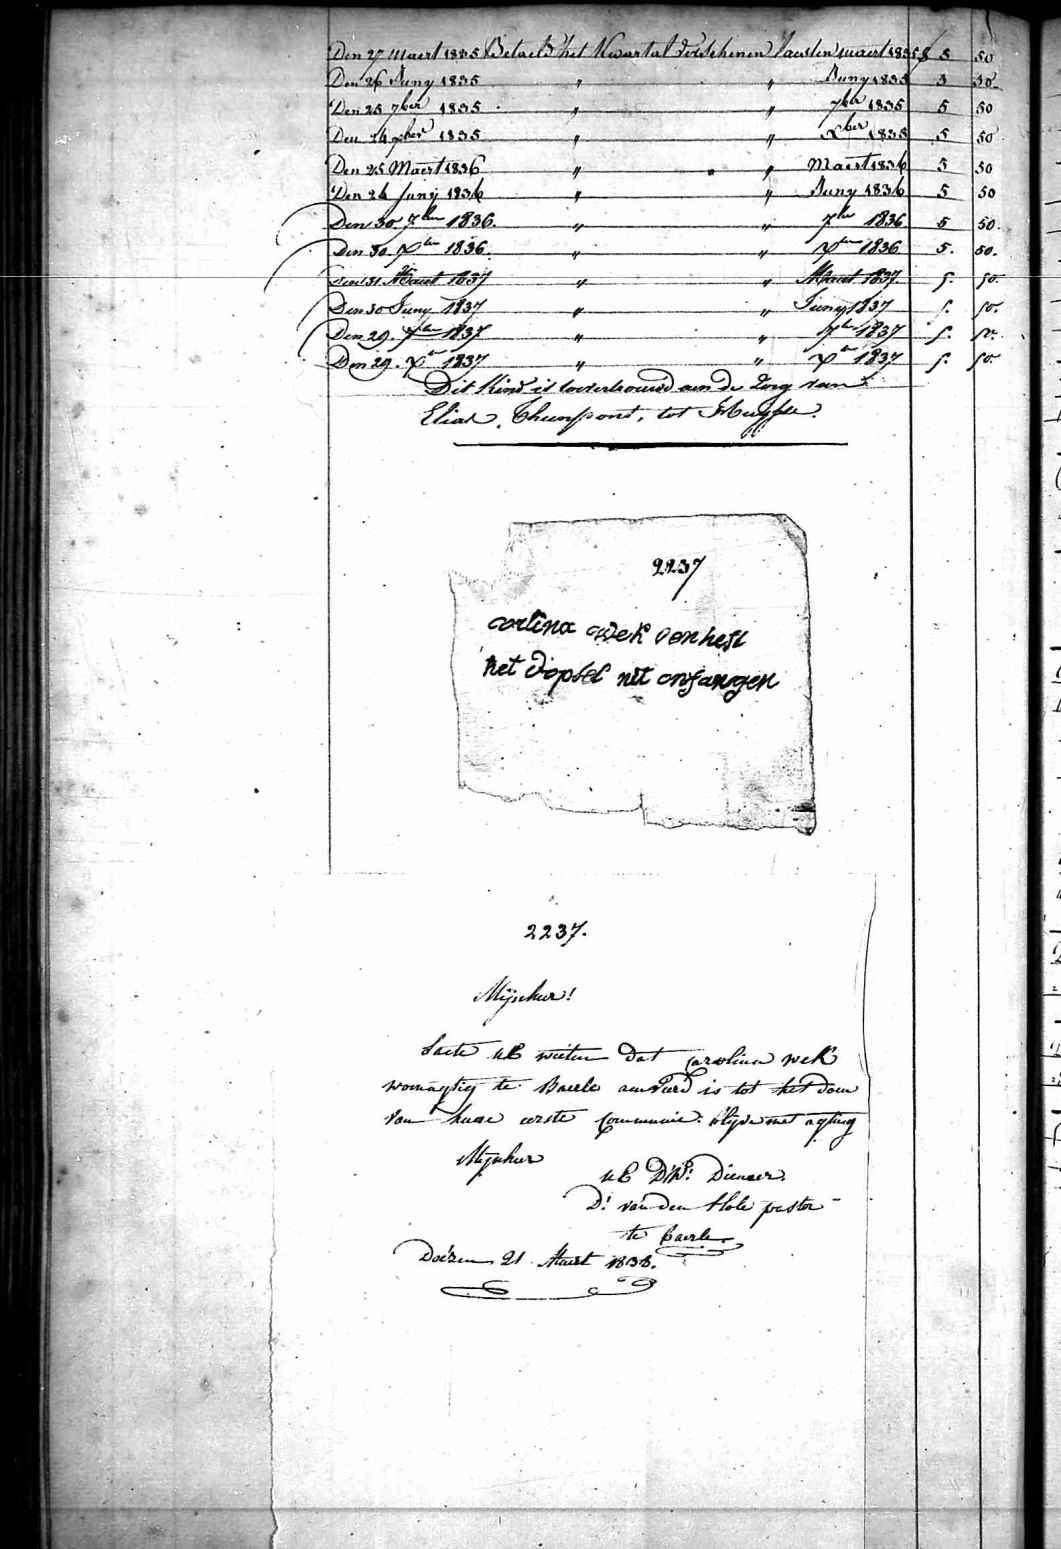 Den 27 Maert 1835 Betaeld het Kwartal verschenen Maert 1835 5 50
Den 26 Juny 1835 " " Juny 1835 5 50
Den 25 7ber 1835 " " 7ber 1835 5 50
Den 24 xber 1835 " " xber 1835 5 50
Den 25 Maert 1836 " " Maert 1836 5 50
Den 24 Junij 1836 " " Juny 1836 5 50
Den 30 7ber 1836. " " 7ber 1836 5 50.
Den 30. Xber 1836. " " Xber 1836 5. 50.
Den 31 Maart 1837 " " Maart 1837. 5. 50.
Den 30 Juny 1837 " " Juny 1837 5. 50.
Den 29. 7ber 1837 " " 7ber 1837 5. 50.
Den 29. Xber 1837 " " Xber 1837 5. 50.
Dit Kind is toevertrouwd aen de Zorg van
Elias, tot
2237
carlina wek van hest
het dopsel nit onfangen
2237.
Mijnheer!
Laete UE weeten dat Carolina wek
woonagtig te Baerle aenveerd is tot het doen
van haere eerste Communie. Blyve met agting
Mynheer
UE DW: Dienaer.
D: van den Hole pastor
te Baerle
21 Maert 1838.